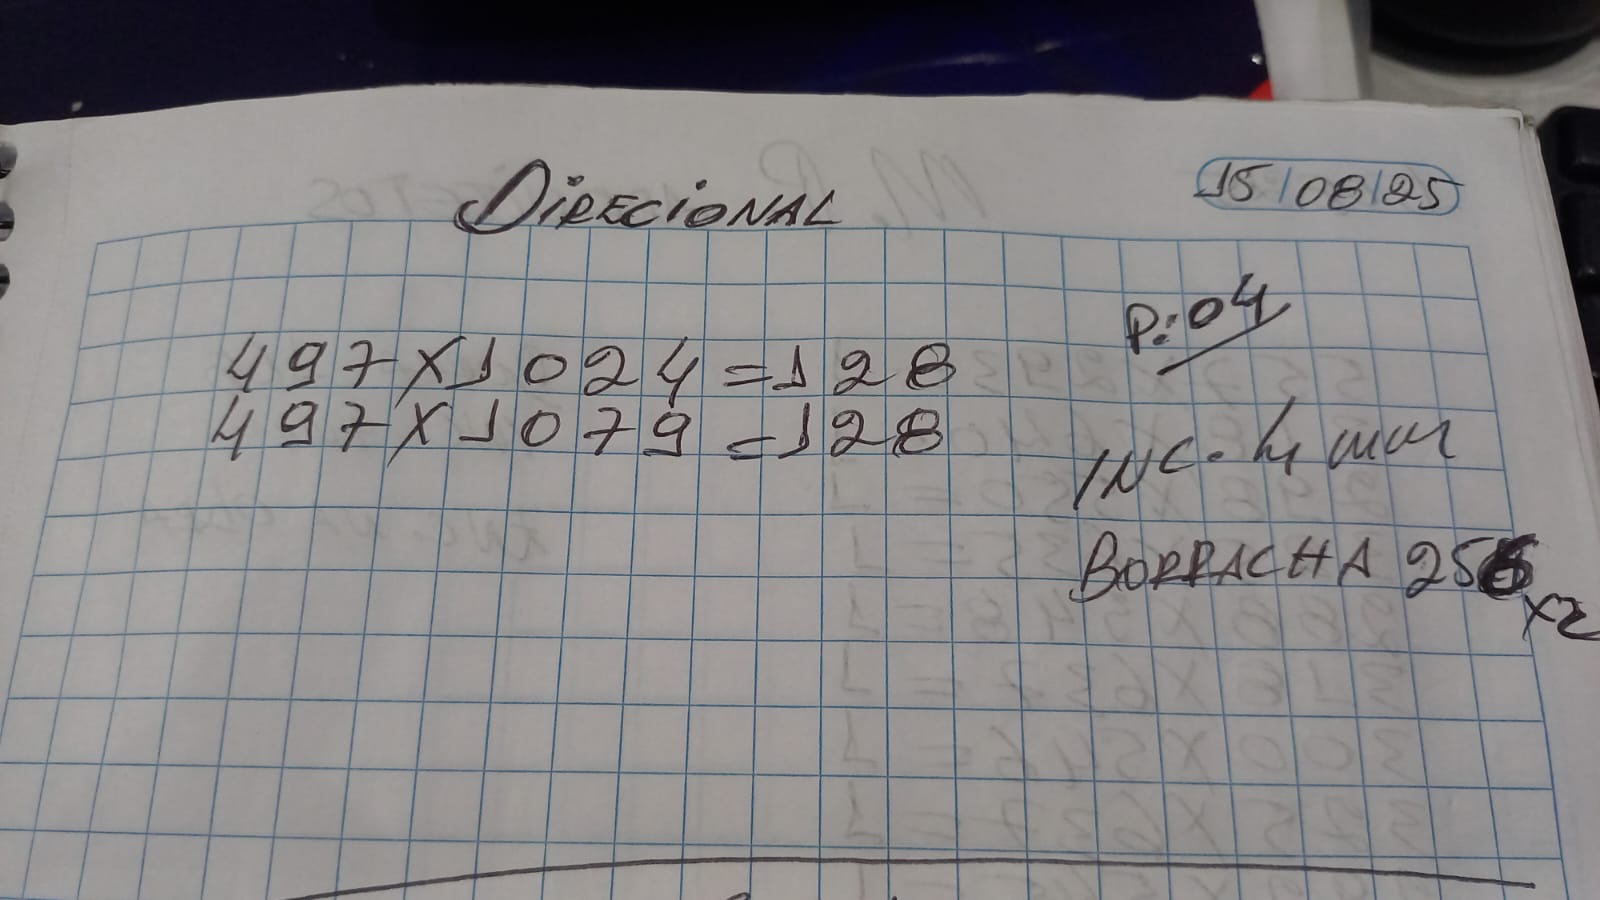 DIRECIONAL
15/08/25
P:04
497X1024=128
497X1079=128
INC. 4 mm
BORRACHA 256
x2